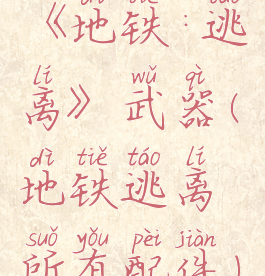 dì tiě táo
《地铁:逃
lí wǔ qì
离》武器(
dì tiě táo lí
地铁逃离
suǒ yǒu pèi jiàn
所有配件)